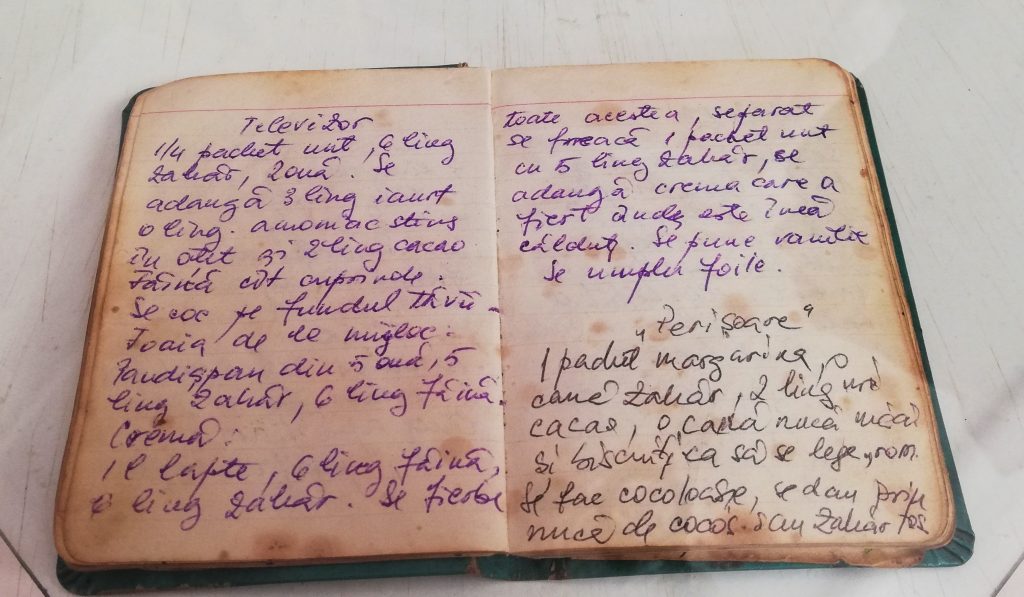 Televizor
1/4 pachet unt, 6 ling
zahăr, 2 ouă. Se
adaugă 3 ling iaurt
o ling. amoniac stins
în oțet și 2 ling cacao
Făină cît cuprinde.
Se coc pe fundul tăvii.
Foaia de la mijloc:
Pandișpan din 5 ouă, 5
ling zahăr, 6 ling făină.
Cremă:
1 l lapte, 6 ling făină,
6 ling zahăr. Se fierbe
toate acestea, separat
se freacă 1 pachet unt
cu 5 ling zahăr, se
adaugă crema care a
fiert când este încă
călduță. Se pune vanilie
Se umplu foile.
„Perișoare"
1 pachet margarina, o
cană zahăr, 2 ling
cacao, o cană nucă
și biscuiți ca să se lege, rom.
Se fac cocoloașe, se dau prin
nucă de cocos sau zahăr tos